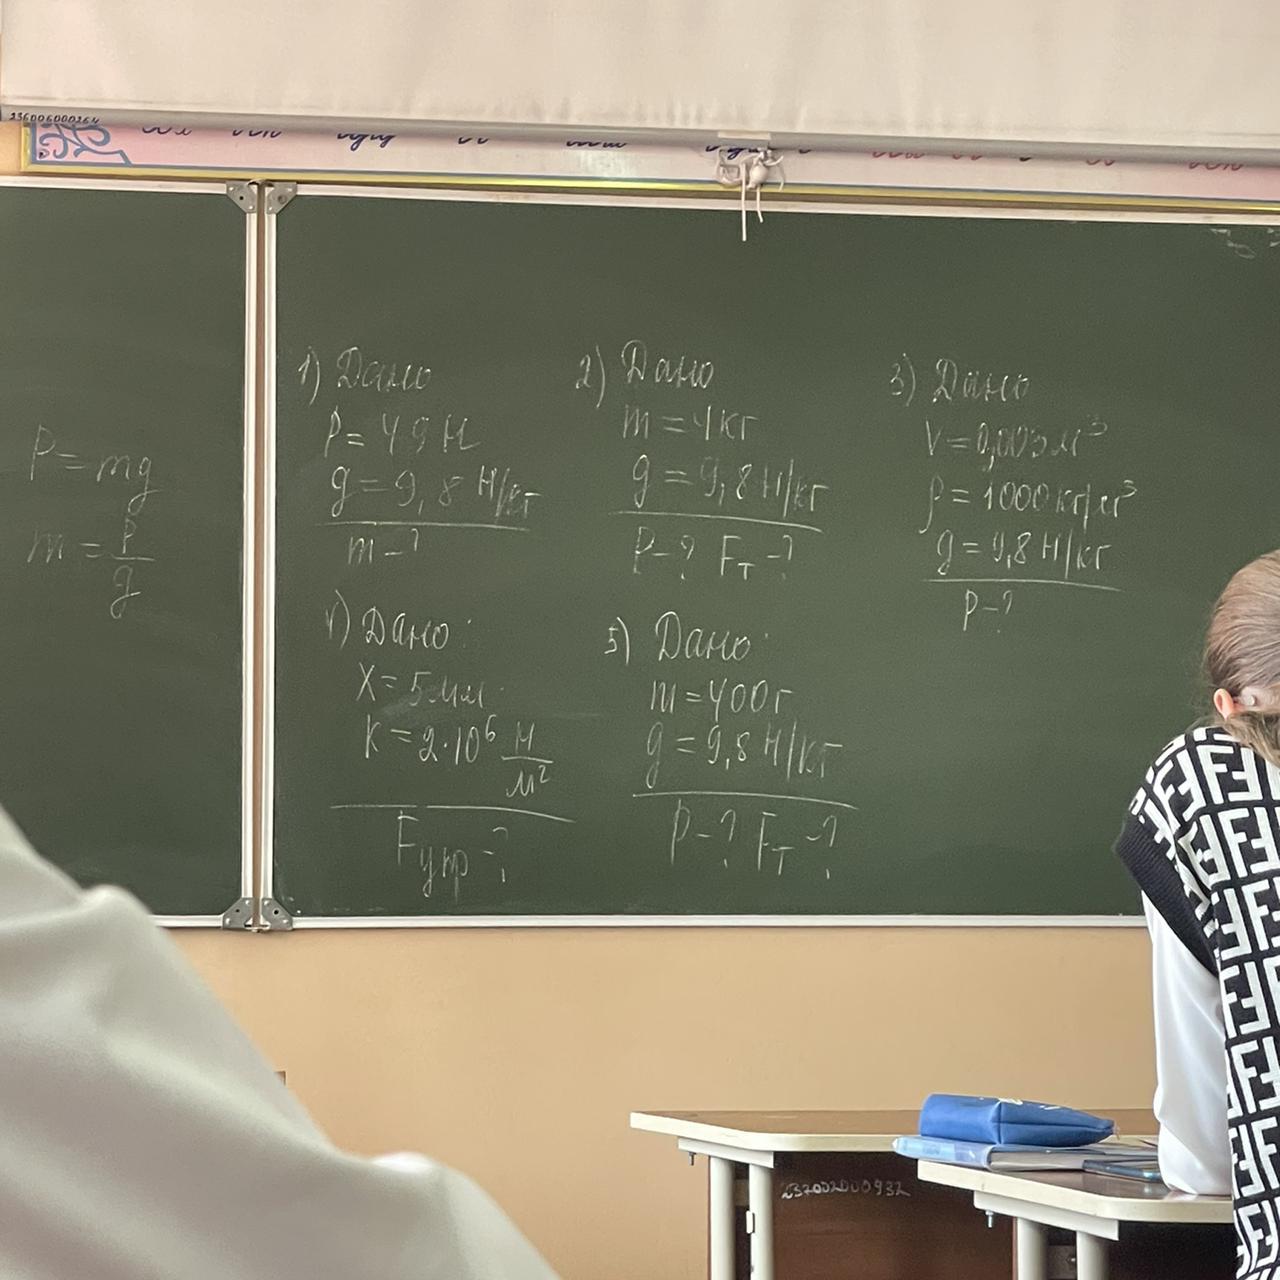 236006000264
P = mg
m = P/g
1) Дано
P = 49 Н
g = 9,8 Н/кг
m - ?
2) Дано
m = 4 кг
g = 9,8 Н/кг
P - ? Fт - ?
3) Дано
V = 0,003 м³
ρ = 1000 кг/м³
g = 9,8 Н/кг
P - ?
4) Дано:
X = 5 мм
K = 2·10⁶ Н/м²
Fупр - ?
5) Дано:
m = 400 г
g = 9,8 Н/кг
P - ? Fт - ?